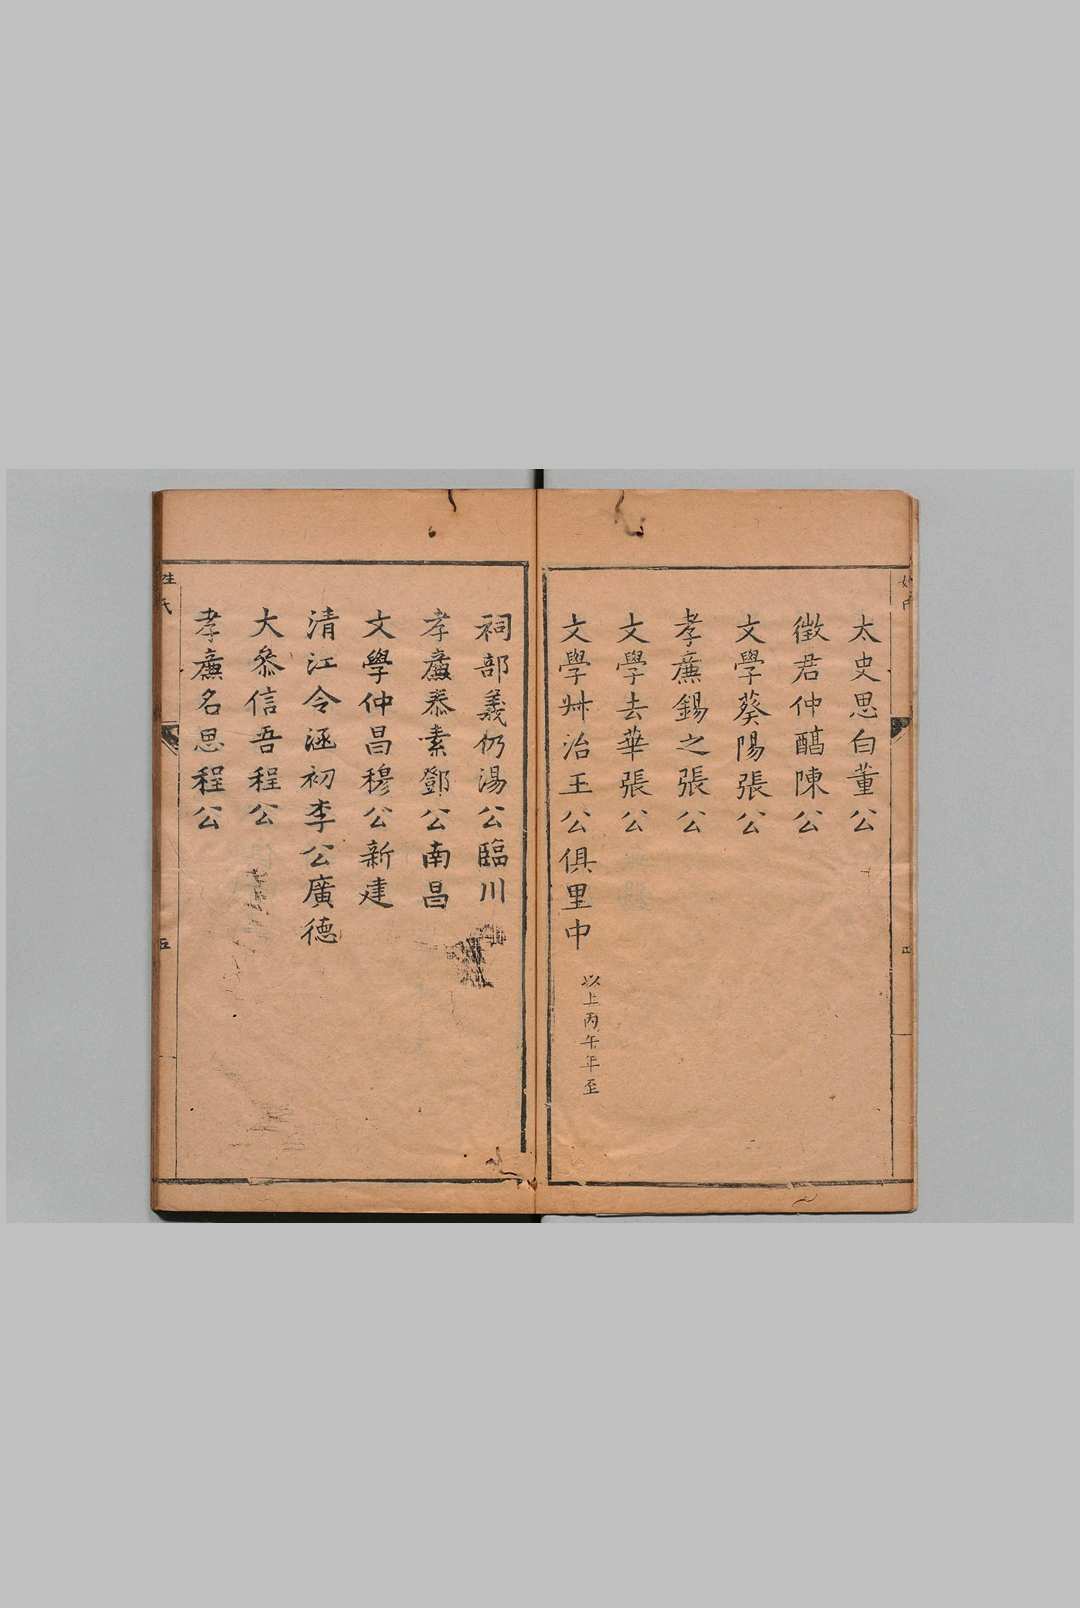 太史思白董公
徵君仲醕陳公
文學葵陽張公
孝廉錫之張公
文學去華張公
文學艸治王公俱里中
以上丙午年至
祠部義仍湯公臨川
孝廉泰素鄧公南昌
文學仲昌穆公新建
清江令涵初李公廣德
大叅信吾程公
孝廉名思程公
姓氏
五